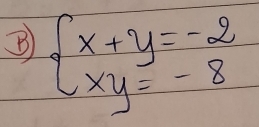 B) x + y = -2
xy = -8